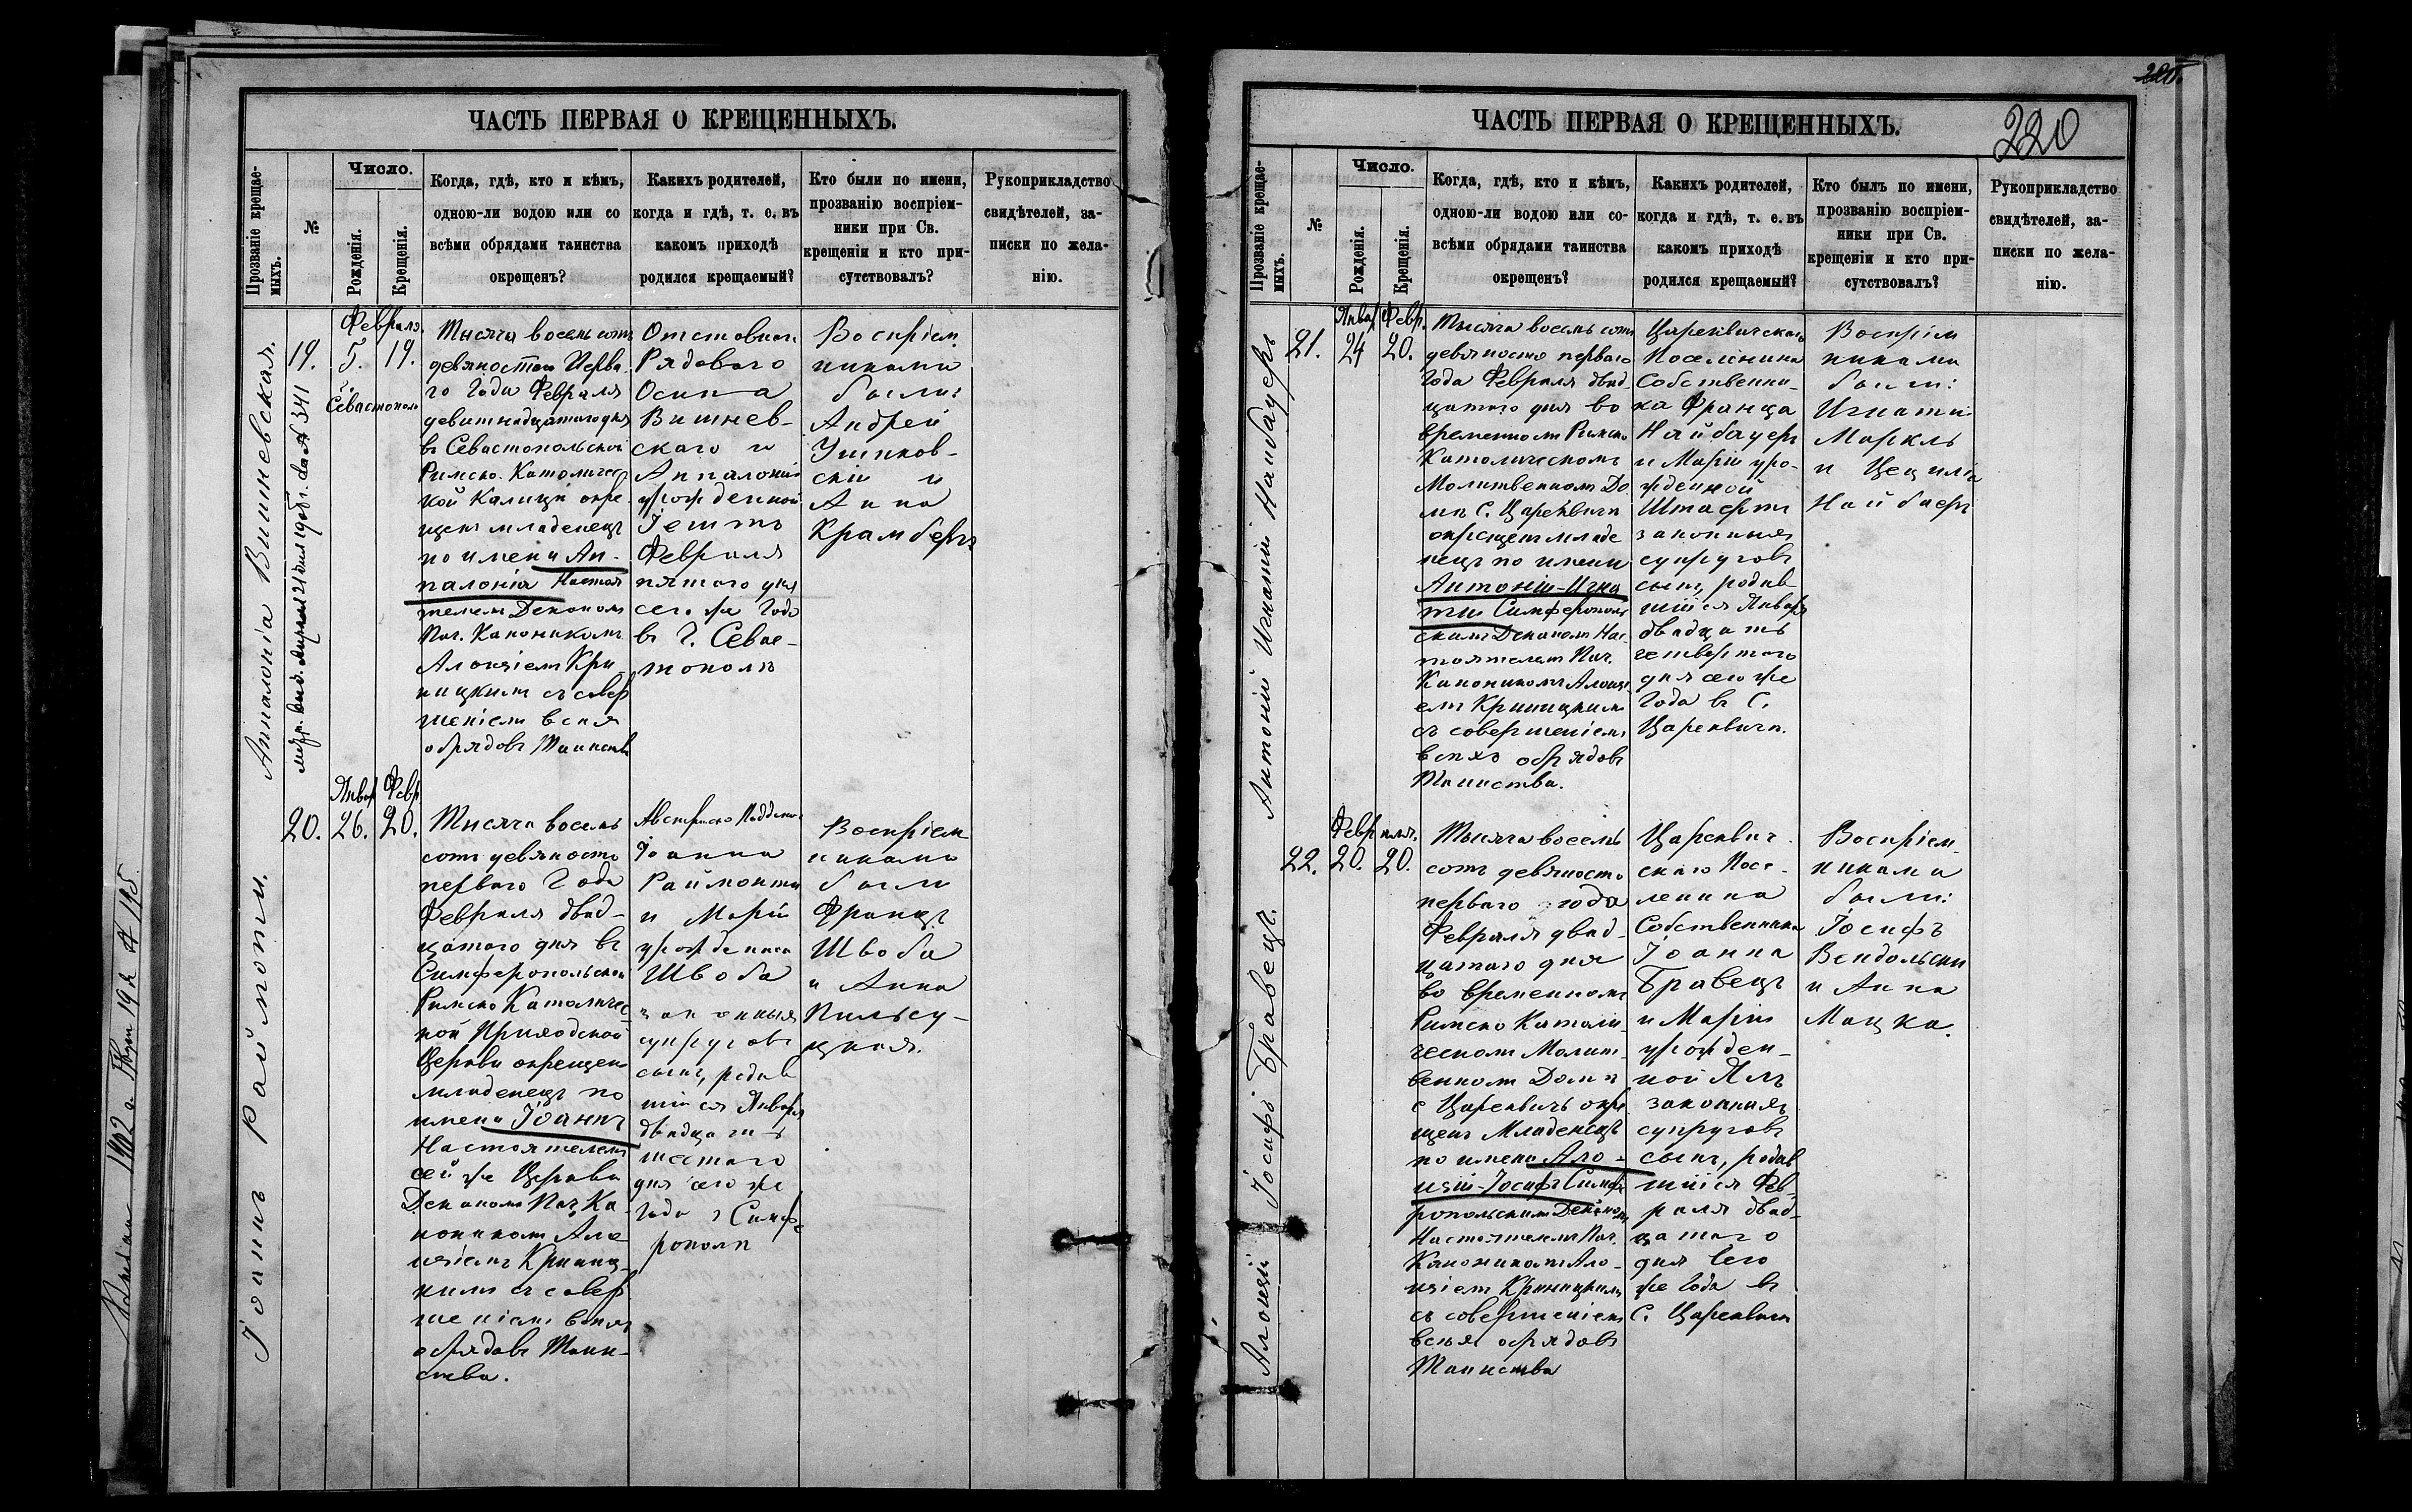 ЧАСТЬ ПЕРВАЯ О КРЕЩЕННЫХЪ.
Прозваніе крещае-
мыхъ.
№
Число.
Рожденія.
Крещенія.
Когда, гдѣ, кто и кѣмъ,
одною-ли водою или со
всѣми обрядами таинства
окрещенъ?
Какихъ родителей,
когда и гдѣ, т. е. въ
какомъ приходѣ
родился крещаемый?
Кто были по имени,
прозванію воспріем-
ники при Св.
крещеніи и кто при-
сутствовалъ?
Рукоприкладство
свидѣтелей, за-
писки по жела-
нію.
Аппалонія Вишневская.
19.
Февраля
5. 19.
Севастополь
Тысяча восемь сотъ
девяностаго Перва-
го Года Февраля
девятнадцатаго дня
въ Севастопольской
Римско-Католичес
кой Калици окре-
щенъ младенецъ
по имени Ап-
палонія Настоя
телемъ Деканомъ
Поч. Каноникомъ
Алоизіемъ Кри-
ницкимъ съ совер
шеніемъ всѣхъ
обрядовъ Таинства
Отставнаго
Рядового
Осипа
Вишнев-
скаго и
Аппалоніи
урожденной
Февраля
пятаго дня
сего же Года
въ Г. Севас-
тополѣ
Воспріем
никами
были:
Андрей
Ушнков-
скій и
Анна
Крамберъ
Іоаннъ Раймонти.
20.
Янва Февр
26. 20.
Тысяча восемь
сотъ девяносто
перваго Года
Февраля двад-
цатаго дня въ
Симферопольской
Римско Католичес-
кой Приходской
Церкви окрещенъ
младенецъ по
имени Іоаннъ
Настоятелемъ
сей же Церкви
Деканомъ Поч. Ка-
ноникомъ Ало
изіемъ Криниц-
кимъ съ совер
шеніемъ всѣхъ
обрядовъ Таин-
ства.
Австрійско Поддан
Іоанна
Раймонти
и Маріи
урожденной
Швоба
законныхъ
супруговъ
сынъ, родив
шійся Января
двадцать
шестаго
дня сего же
Года г Симфе
рополѣ
Воспріем
никами
были
Францъ
Швоба
и Анна
Пильсу-
цкая.
220
ЧАСТЬ ПЕРВАЯ О КРЕЩЕННЫХЪ.
Прозваніе крещае-
мыхъ.
№
Число.
Рожденія.
Крещенія.
Когда, гдѣ, кто и кѣмъ,
одною-ли водою или со-
всѣми обрядами таинства
окрещенъ?
Какихъ родителей,
когда и гдѣ, т. е. въ
какомъ приходѣ
родился крещаемый?
Кто былъ по имени,
прозванію воспріем-
ники при Св.
крещеніи и кто при-
сутствовалъ?
Рукоприкладство
свидѣтелей, за-
писки по жела-
нію.
Антоній Игнатій Найбауеръ
21.
Январ Февр.
24 20.
Тысяча восемь сотъ
девяносто перваго
Года Февраля двад-
цатаго дня во
временномъ Римско
Католическомъ
Молитвенномъ До
мѣ С. Цареквичъ
окрещенъ младе
нецъ по имени
Антоній-Игна
тій Симферополь
скимъ Деканомъ Нас-
тоятелемъ Поч.
Каноникомъ Алоизі
емъ Криницкимъ
съ совершеніемъ
всѣхъ обрядовъ
Таинства.
Цареквичскаго
Поселянина
Собственни-
ка Франца
Найбауеръ
и Маріи уро-
жденной
Штаертъ
законныхъ
супруговъ
сынъ, родив
шійся Января
двадцать
четвертаго
дня сего же
Года въ С.
Цареквичи.
Воспріем
никами
были:
Игнатій
Маркль
и Цецилія
Найбаеръ
Алоизій Іосифъ Бравецъ.
22.
Февраля.
20. 20.
Тысяча восемь
сотъ девяносто
перваго года
Февраля двад-
цатаго дня
во временномъ
Римско Католи-
ческомъ Молит-
венномъ Домѣ
с Цареквичъ окре
щенъ Младенецъ
по имени Ало-
изій-Іосифъ Симфе
ропольскимъ Деканомъ
Настоятелемъ Поч.
Каноникомъ Ало-
изіемъ Криницкимъ
съ совершеніемъ
всѣхъ обрядовъ
Таинства
Цареквич
скаго Посе-
лянина
Собственника
Іоанна
Бравецъ
и Маріи
урожден-
ной Ялъ
законныхъ
супруговъ
сынъ, родив
шійся Фев-
раля двад-
цатаго
дня Сего
же Года въ
С. Цареквичи
Воспріем-
никами
были:
Іосифъ
Вендольски
и Анна
Мацка.